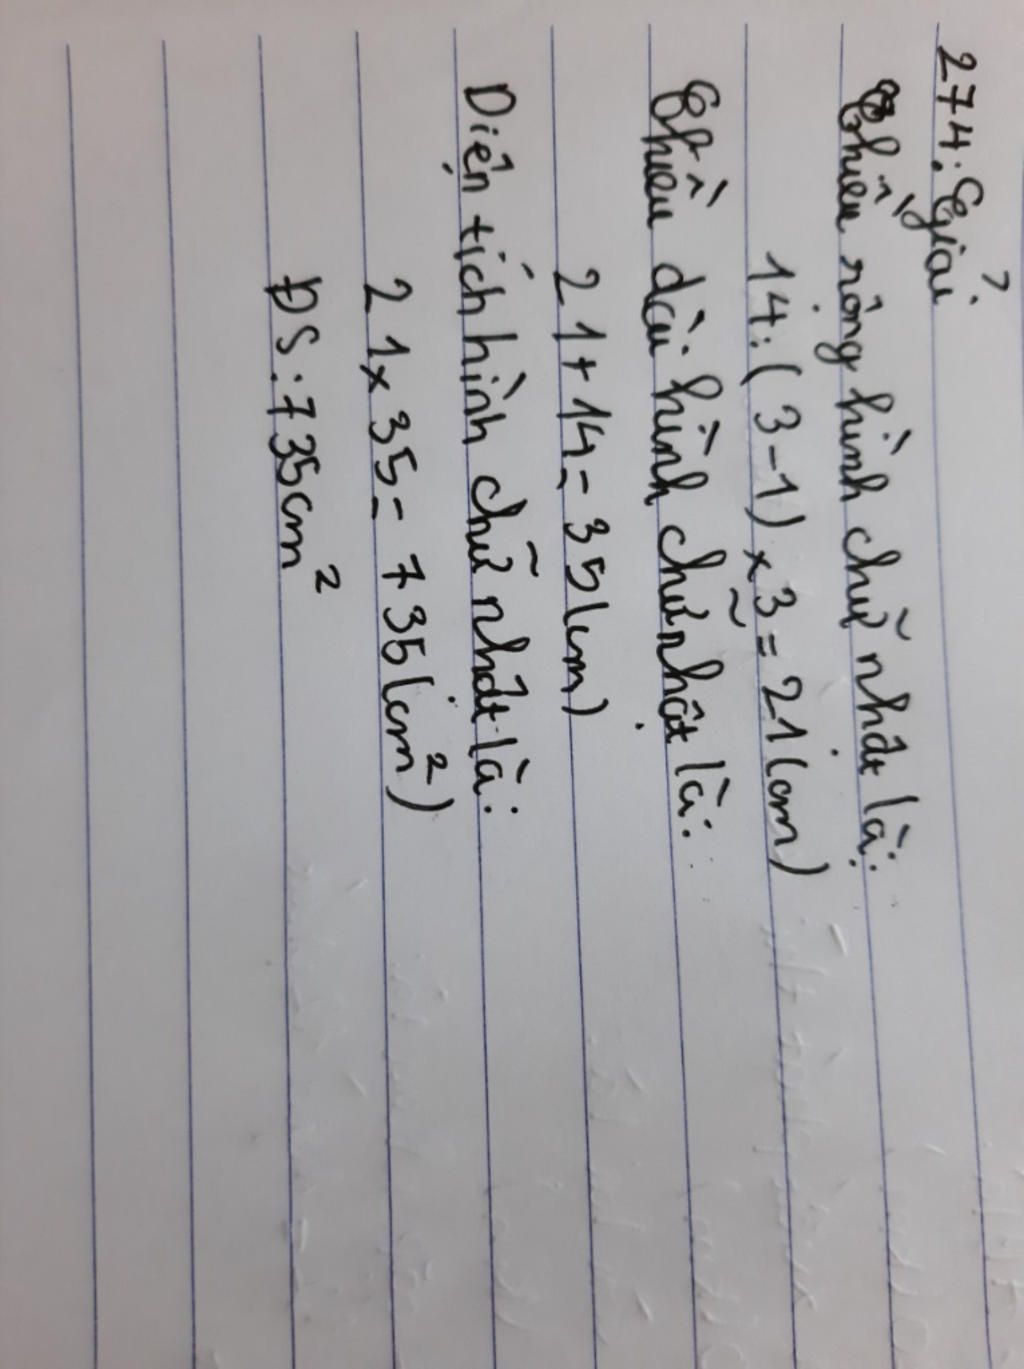 274: Giải
Chiều rộng hình chữ nhật là:
14:(3-1)×3=21(cm)
Chiều dài hình chữ nhật là:
21+14=35(cm)
Diện tích hình chữ nhật là:
21×35=735(cm²)
ĐS:735cm²